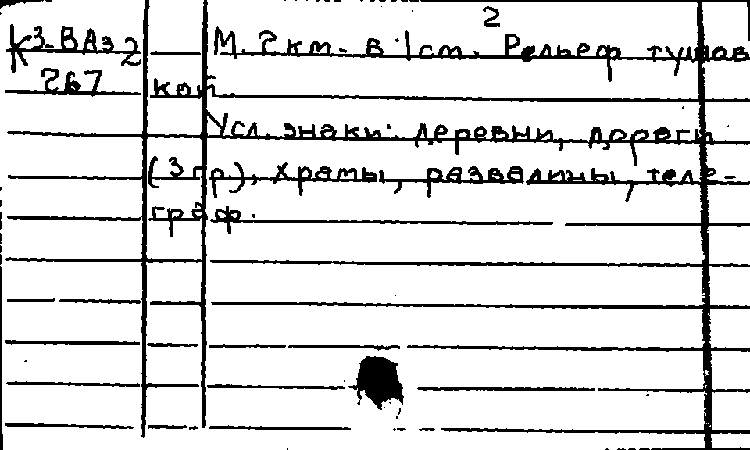 2
К 3-ВАз 2 М. 2км. в 1см. Рельеф тушев
267 кой.
Усл. знаки: деревни, дороги
(3 гр.), храмы, развалины, теле-
граф.